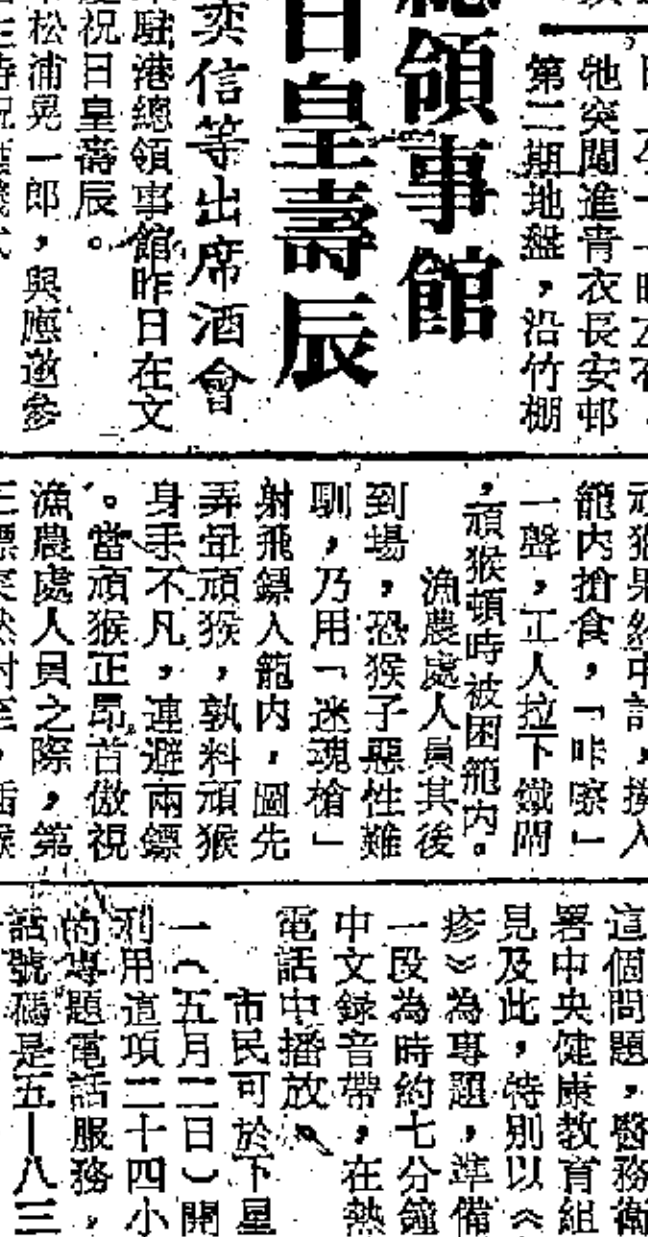 牠突闖進青衣長安邨
第二期地盤，沿竹棚
總領事館
日皇壽辰
奕信等出席酒會
駐港總領事館昨日在文
祝日皇壽辰。
松浦晃一郎，與應邀參
頑猴果然中計，撲入
籠内搶食，「咔嚓」
一聲，工人拉下鐵閘
，頑猴頓時被困籠内。
漁農處人員其後
到場，恐猴子惡性難
馴，乃用「迷魂槍」
射飛鏢入籠内，圖先
弄暈頑猴，孰料頑猴
身手不凡，連避兩鏢
。當頑猴正昂首傲視
漁農處人員之際，第
這個問題，醫務衞
署中央健康教育組
見及此，特別以《
疹》為專題，準備
一段為時約七分鐘
中文録音帶，在熱
電話中播放。
市民可於下星
一（五月二日）開
利用這項二十四小
的專題電話服務，
話號碼是五—八三